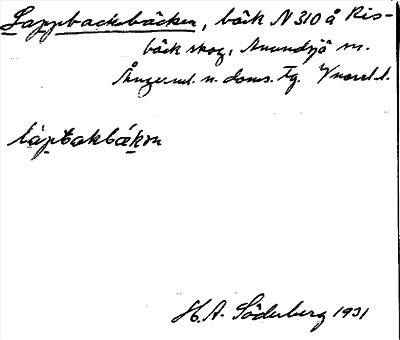 Lappbacksbäcken, bäck N 310 å Ris-
bäck skog, Anundsjö sn.
Ångerml. n. doms. Tg. Vnorrl. l.
làptakbákɒn
H.A. Söderberg 1931